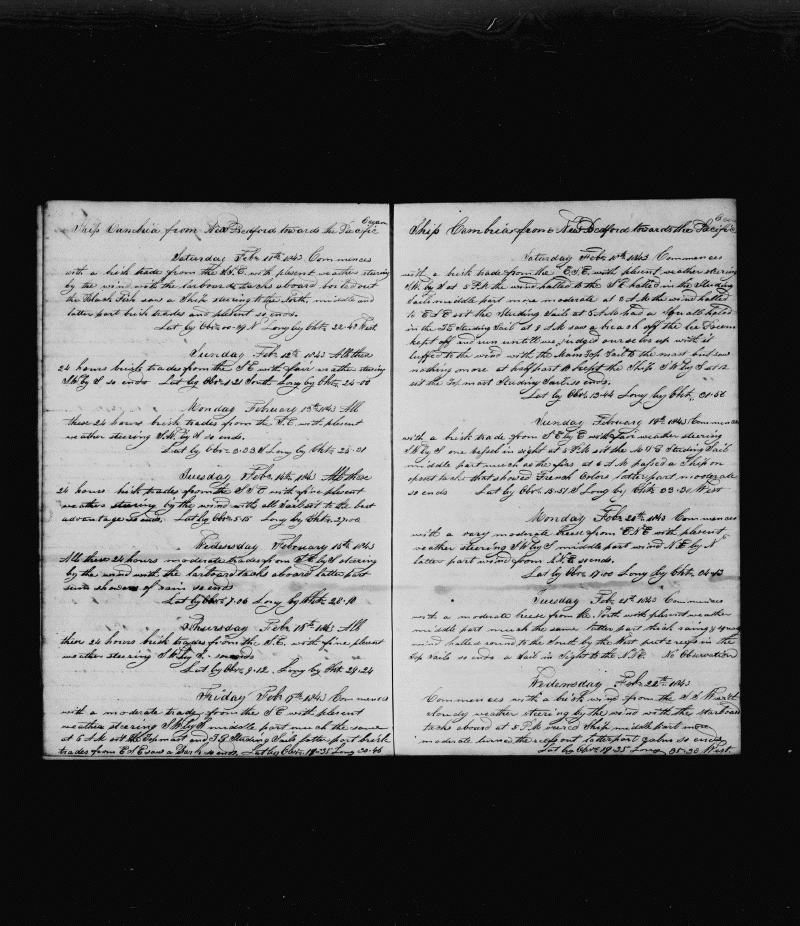 Ocean
Ship Cambria from New Bedford towards the Pacific
Saturday Feb. 11th 1843 Commences
with a brisk trade from the S.E. with plesent weather steering
by the wind with the larboard tacks aboard boiled out
the Black Fish saw a Ship steering to the North, middle and
latter part brisk trades and plesent so ends.
Lat by Obv. 00-4 N Long by Chtr. 22-43 West
Sunday Feb. 12th 1843 All these
24 hours brisk trades from the S.E with fair weather steering
S.W. by S so ends Lat by Obv. 1 21 South Long by Chtr. 24-00
Monday February 13th 1843 All
these 24 hours brisk trades from the S.E. with plesent
weather steering S.W. by S so ends.
Lat by Obv. 3-33 S Long by Chtr. 25-21
Tuesday Feb. 14th 1843 All these
24 hours brisk trades from the S.S.E with fine plesent
weather steering by the wind with all sail set to the best
advantage so ends. Lat by Obv. 5-15 Long by Chtr. 27-00
Wedesday February 15th 1843
All these 24 hours moderate trades from S.E. by S steering
by the wind with the larboard tacks aboard latter part
some showers of rain so ends
Lat by Obv. 7-06 Long by Chtr. 28-10
Thursday Feb. 16th 1843 All
these 24 hours brisk trades from the S.E. with fine plesent
weather steering S.W. by S. so ends
Lat by Obv. 9-12. Long by Chtr. 29-24
Friday Feb. 17th 1843 Commences
with a moderate trade from the S.E with plesent
weather steering S.W. by S middle part much the same
at 6 A.M set the Topmast and T.G Studing Sails latter part brisk
trades from E.S.E saw a Bark so ends. Lat by Obv. 11-35 Long 30-46
Ocean
Ship Cambria from New Bedford towards the Pacific
Saturday Feb. 18th 1843 Commences
with a brisk trade from the E.S.E. with plesent weather steering
S.W. by S at 5 P.M the wind halled to the S.E. halled in the Studing
Sails middle part more moderate at 2 A.M the wind halled
to E.S.E set the Studing Sails at 5 A.M had a Squall haled
in the T.G Studing Sail at 9 A.M saw a breach off the lee beam
kept off and run untill we judged ourselves up with it
luffed to the wind with the Main Top Sail to the mast but saw
nothing more at half past 10 kept the Ship S.W. by S at 12
set the Topmast Studing Sails so ends.
Lat by Obv. 13-44 Long by Chtr. 31-56
Sunday February 19th 1843 Commences
with a brisk trade from S.E. by E with fair weather steering
S.W. by S one vessel in sight at 4 P.M set the M.T.G Studing Sail
middle part much as the first at 6 A.M passed a Ship on
oposet tacks that showed French Colors latter part moderate
so ends Lat by Obv. 15-51 S Long by Chtr. 33-31 West
Monday Feb. 20th 1843 Commences
with a very moderate breese from E.N.E with plesent
weather steering S.W. by S middle part wind N.E. by N
latter part wind from N.E. so ends.
Lat by Obv. 17-00 Long by Chtr. 34-43
Tuesday Feb. 21st 1843 Commences
with a moderate breese from the North with plesent weather
middle part much the same latter part thick rainy & squally
wind halled round to the South by the West put 2 reefs in the
Top Sails so ends a Sail in Sight to the N.E. No Observation
Wedensday Feb. 22nd 1843
Commences with a brisk wind from the S.S West
cloudy weather steering by the wind with the starboard
tacks aboard at 5 P.M wore Ship middle part more
moderate turned the reefs out latter part calm so ends
Lat by Obv. 18-25 Long 35-20 West.